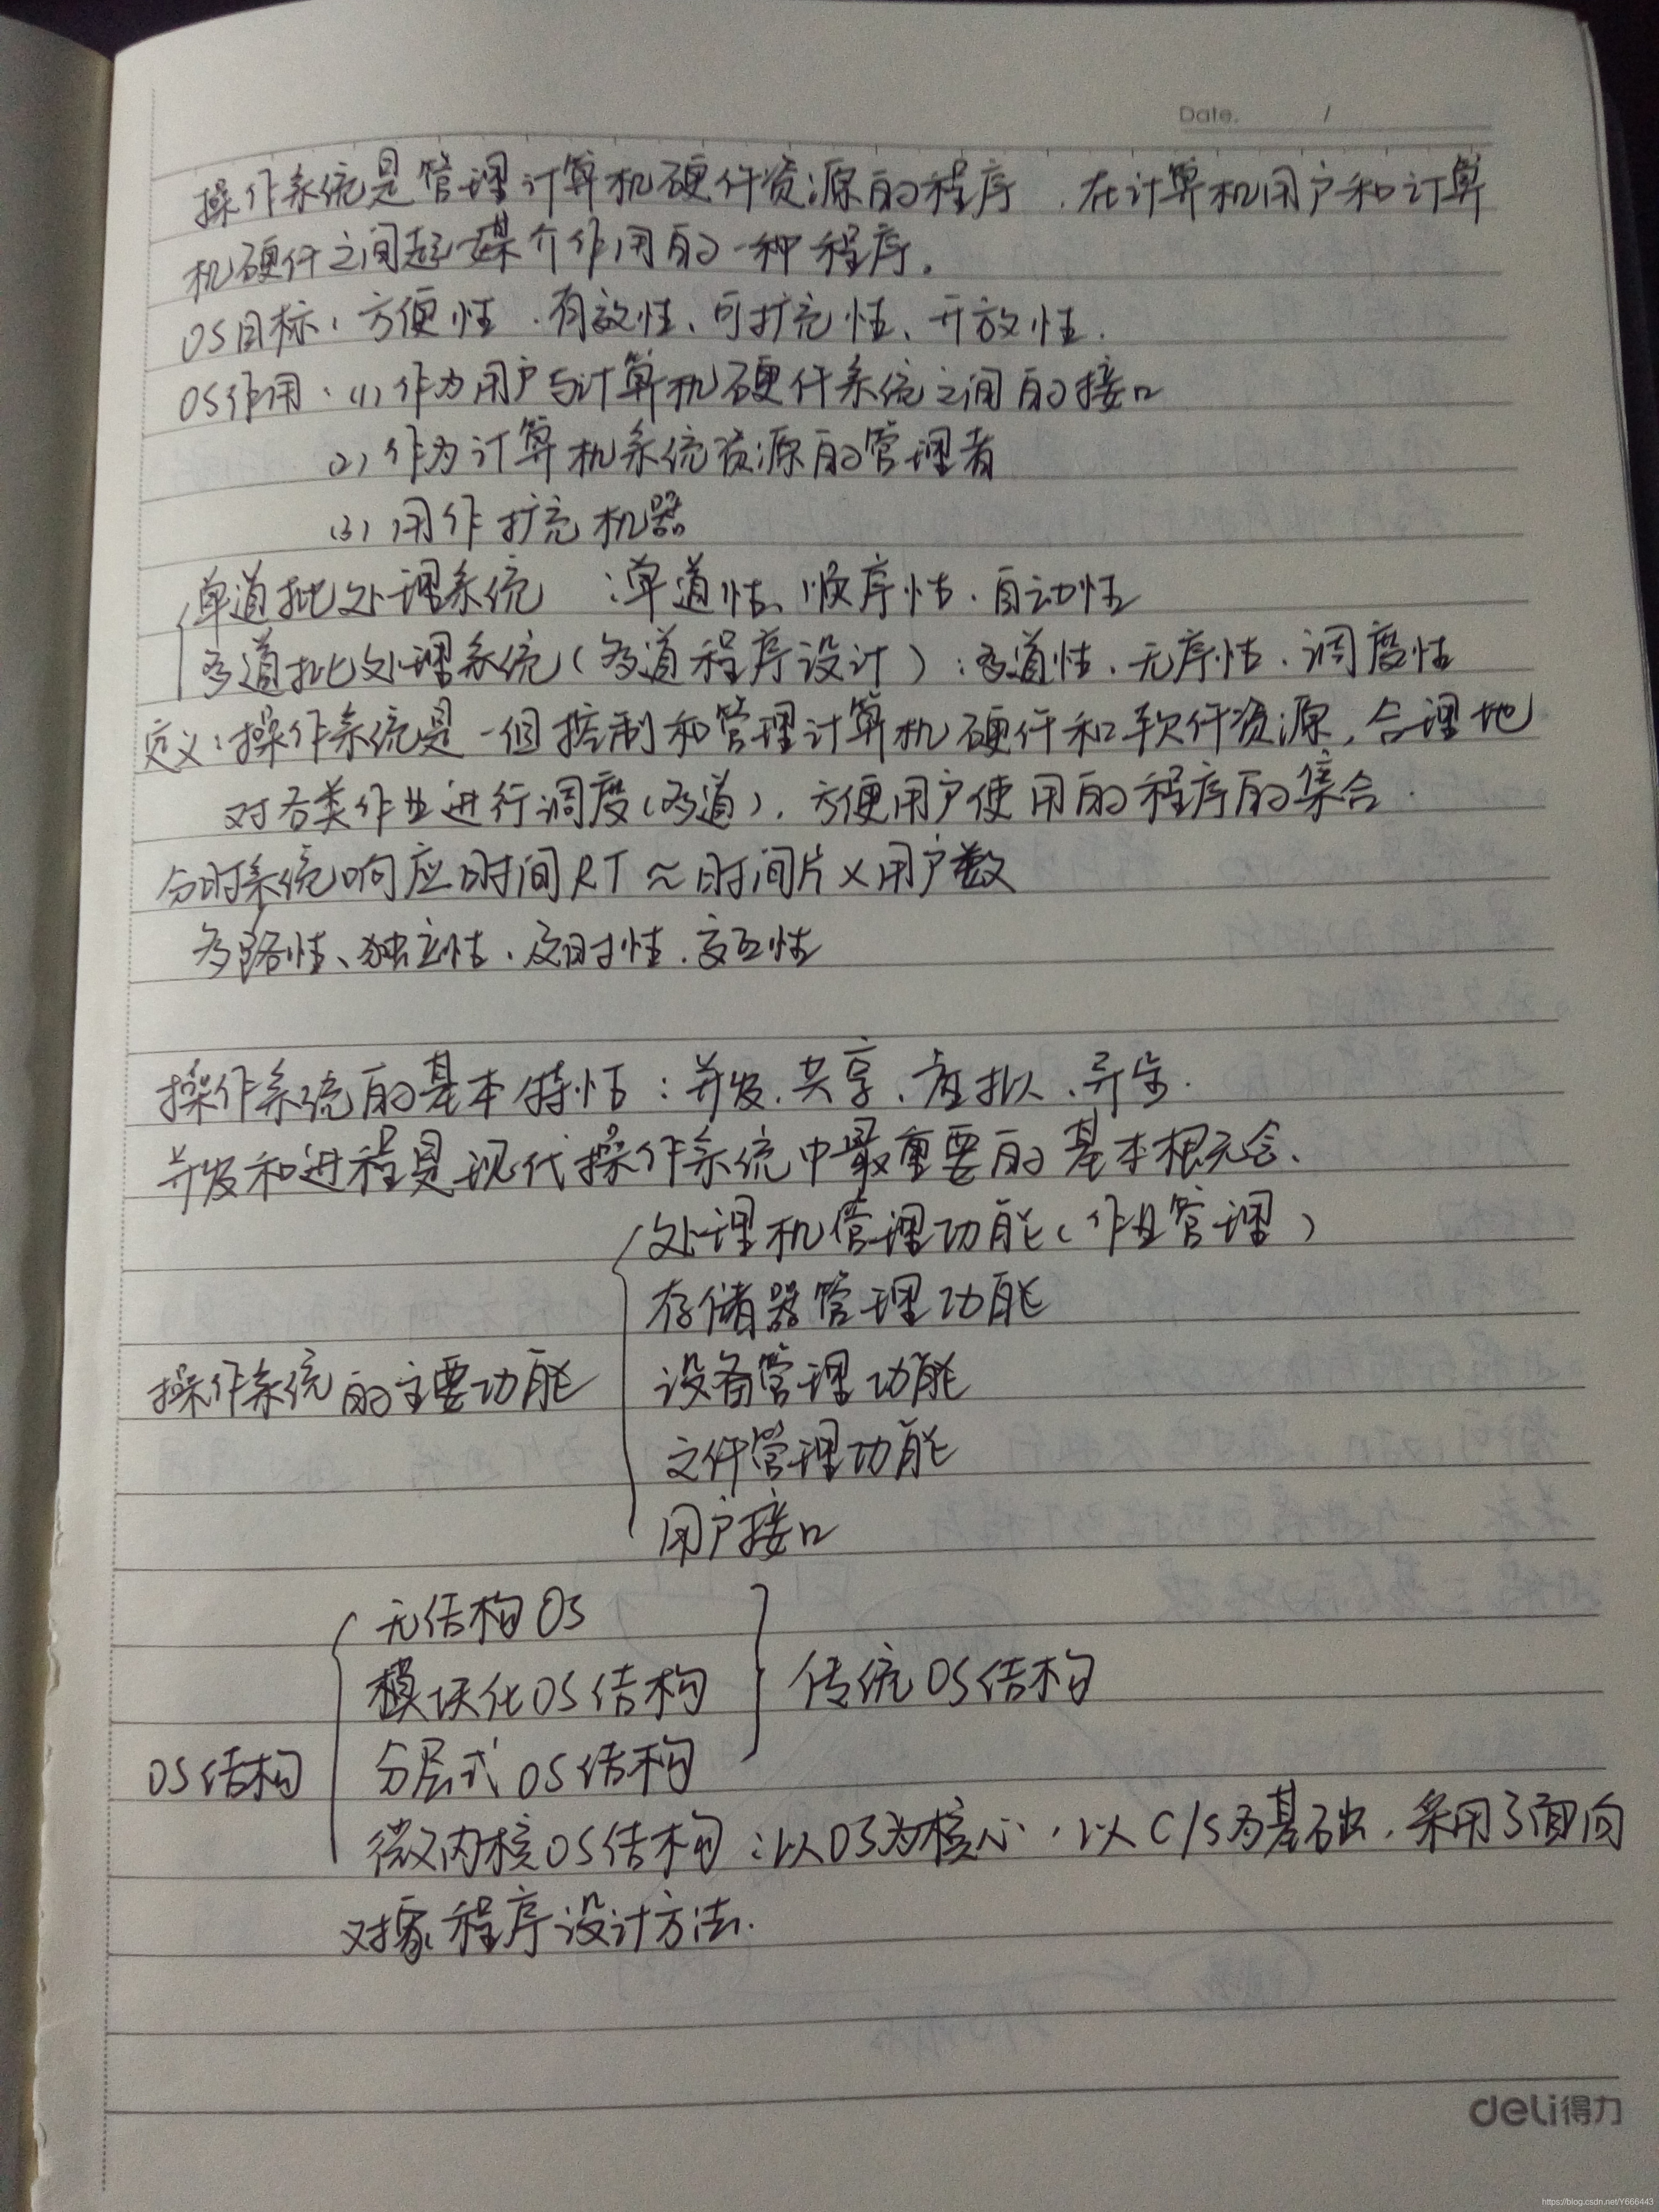 Date. /
操作系统是管理计算机硬件资源的程序，在计算机用户和计算
机硬件之间起媒介作用的一种程序。
OS目标：方便性、有效性、可扩充性、开放性.
OS作用：(1)作为用户与计算机硬件系统之间的接口
(2)作为计算机系统资源的管理者
(3)用作扩充机器
单道批处理系统：单道性、顺序性、自动性
多道批处理系统(多道程序设计)：多道性、无序性、调度性
定义：操作系统是一组控制和管理计算机硬件和软件资源，合理地
对各类作业进行调度(多道)，方便用户使用的程序的集合.
分时系统响应时间RT≈时间片×用户数
多路性、独立性、及时性、交互性
操作系统的基本特性：并发、共享、虚拟、异步.
并发和进程是现代操作系统中最重要的基本概念、
处理机管理功能(作业管理)
存储器管理功能
操作系统的主要功能 设备管理功能
文件管理功能
用户接口
无结构OS
模块化OS结构 传统OS结构
OS结构 分层式OS结构
微内核OS结构：以OS为核心，以C/S为基础，采用了面向
对象程序设计方法.
deli得力
https://blog.csdn.net/Y666443